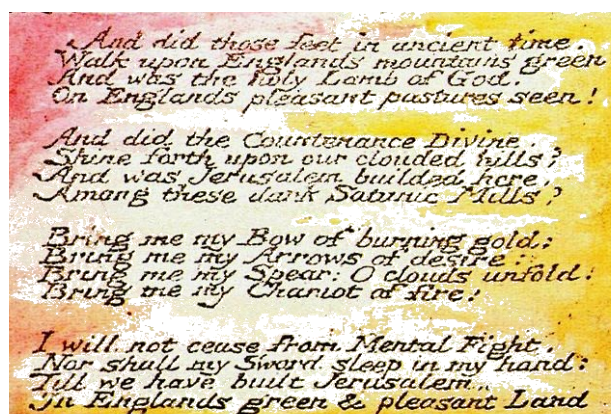 And did those feet in ancient time.
Walk upon Englands mountains green
And was the holy Lamb of God.
On Englands pleasant pastures seen!
And did the Countenance Divine.
Shine forth upon our clouded hills?
And was Jerusalem builded here
Among these dark Satanic Mills?
Bring me my Bow of burning gold:
Bring me my Arrows of desire:
Bring me my Spear: O clouds unfold:
Bring me my Chariot of fire!
I will not cease from Mental Fight.
Nor shall my Sword sleep in my hand:
Till we have built Jerusalem.
In Englands green & pleasant Land